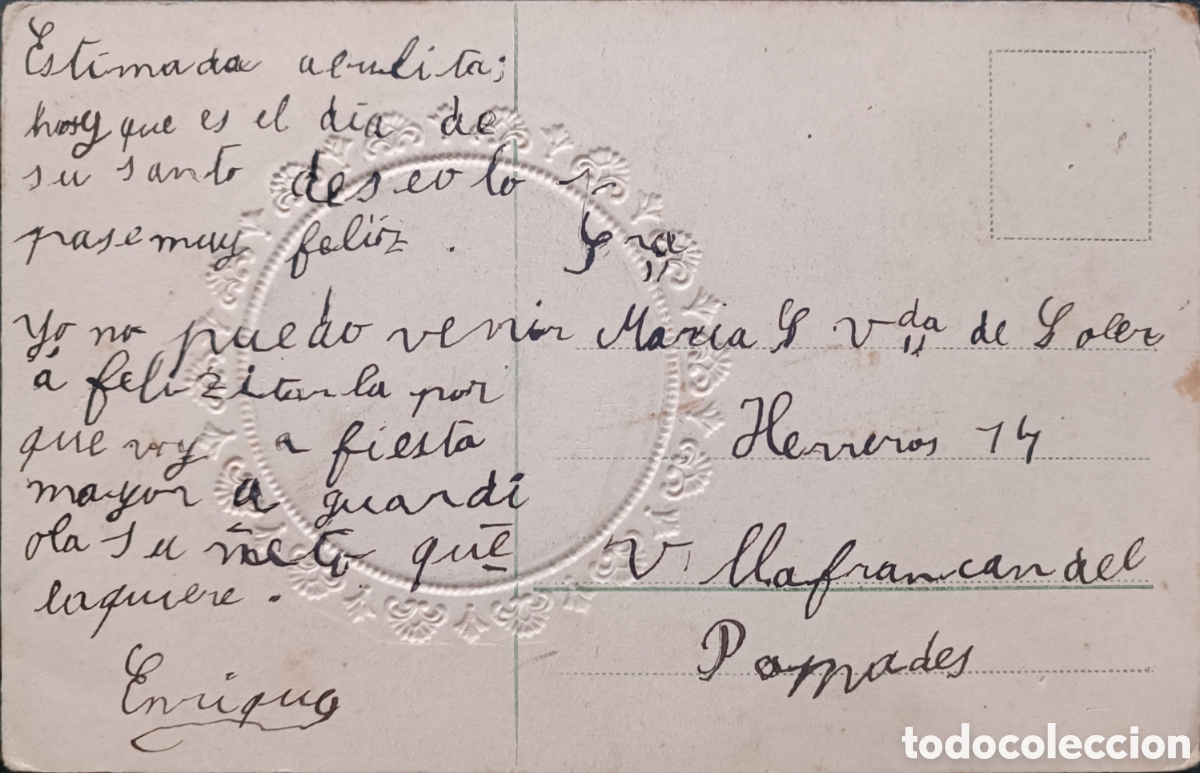 Estimada aeulita;
hoy que es el día de
su santo deseo lo
pase muy felioz.
Yo no puedo venir
á felizitarla por
que voy a fiesta
mayor a guardi
ola Su nieto que
laquiere.
Enrique
Sra
Maria S Vda de Soler
Herreros 14
Villafrancandel
Panades
todocoleccion